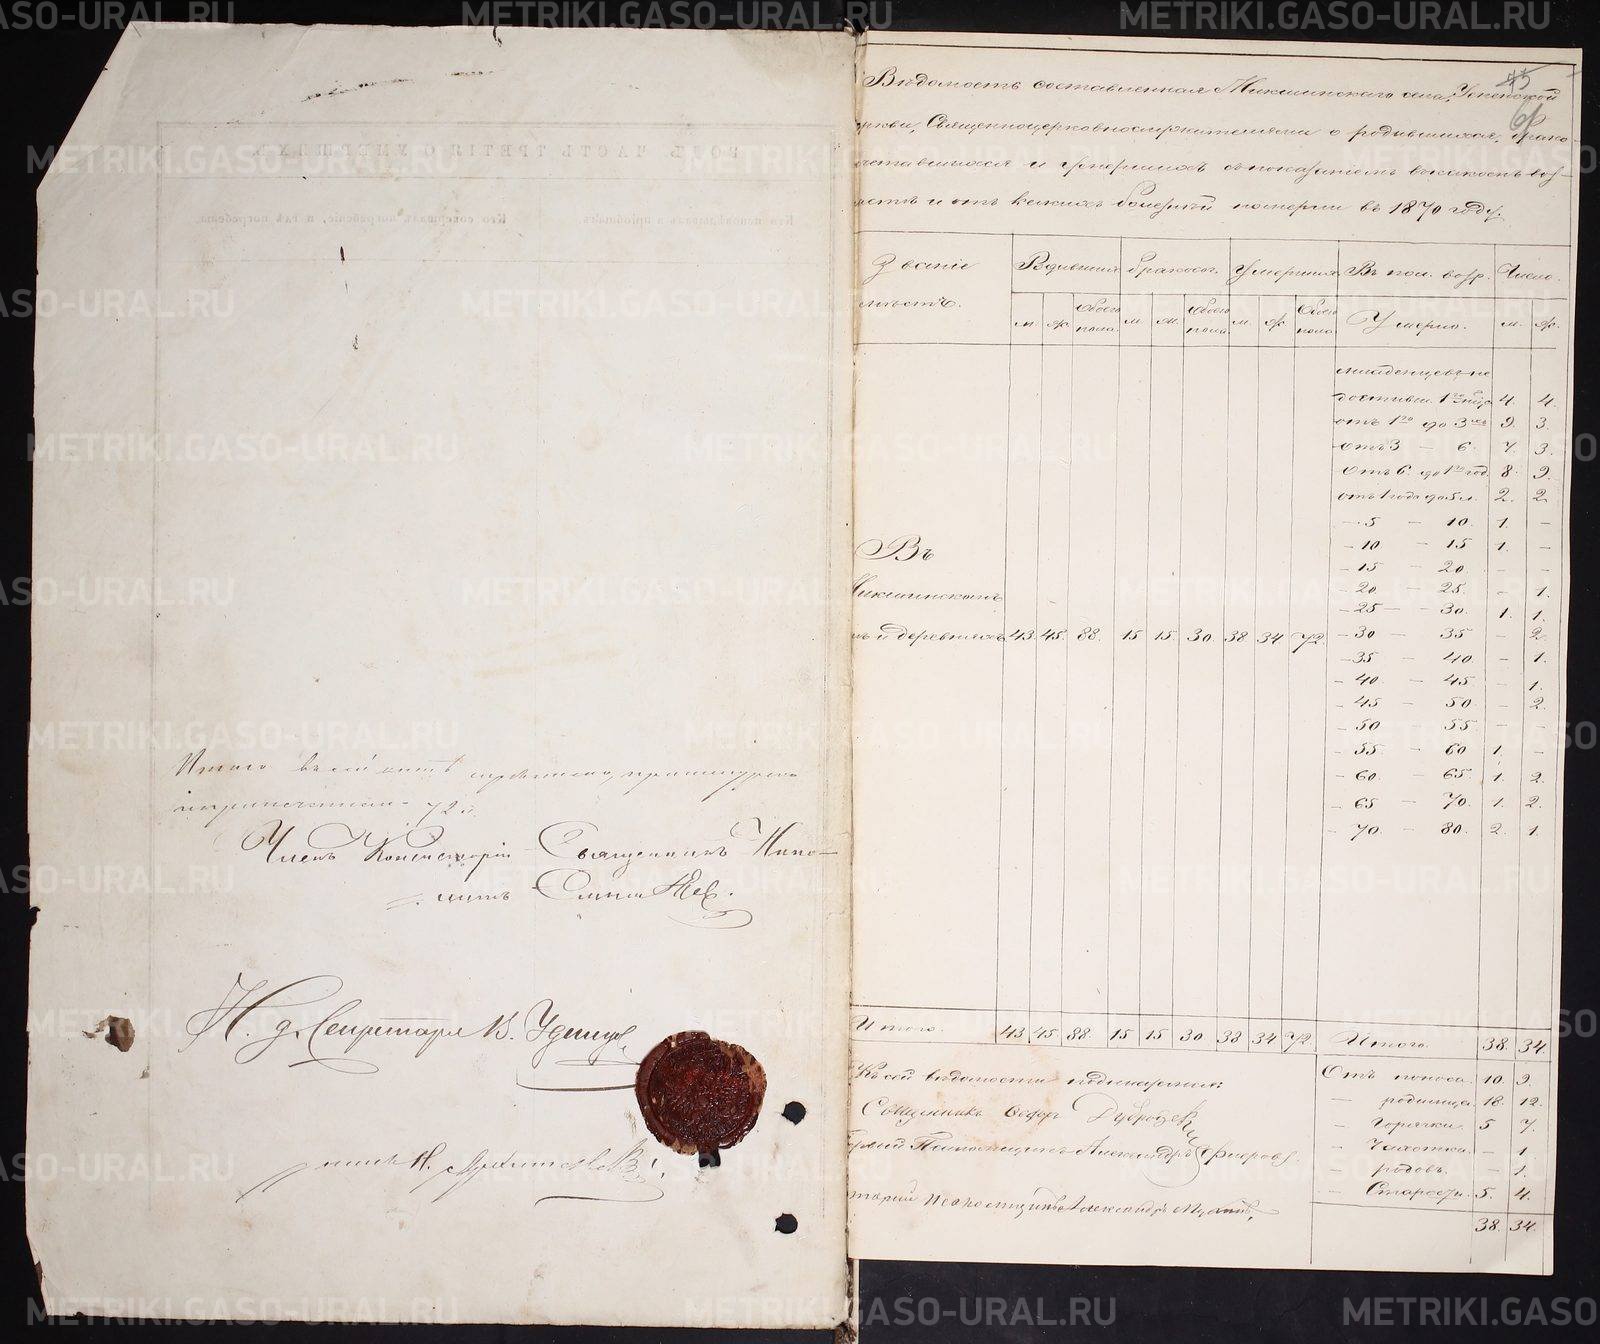 Итого въ сей книгѣ
72
Членъ Консисторіи Священникъ Иппо-
литъ
И. д. Секретаря В. Удинц
45
61
Вѣдомость составленная Микшинскаго села, Успенской
Священноцерковнослужителями о родившихся, брако-
и умершихъ съ показаніемъ въ какомъ воз-
и отъ какихъ болезней померли въ 1870 году.
Званіе
мѣстъ.
Родившихся
бракосоч.
Умершихъ
Въ кол. возр.
Число.
м. ж. Обоего пола
м. ж. Обоего пола
м. ж. Обоего пола
Умерло.
м. ж.
младенцевъ не
достигш. 1го мѣс. 4. 4.
отъ 1го до 3хъ 9. 3.
отъ 3 — 6. 7. 3.
отъ 6 до 1го год. 8. 9.
отъ 1 года до 5 л. 2. 2
— 5 — 10. 1. —
— 10 — 15 1. —
— 15 — 20. — —
— 20. — 25. — 1.
— 25 — 30. 1. 1.
Въ
Микшинскомъ
и деревняхъ 43. 45. 88. 15 15. 30. 38 34 72. — 30 — 35 — 2.
— 35 — 40. — 1.
— 40 — 45 — 1.
— 45 — 50. — 2.
— 50 — 55 — —
— 55 — 60 1. —
— 60 — 65. 1. 2.
— 65 — 70. 1. 2.
— 70. — 80. 2. 1.
Итого. 43. 45. 88. 15 15 30 38 34 72. Итого 38. 34.
Къ сей вѣдомости подписались:
Священникъ Ѳедоръ
Псаломщикъ Александръ
Псаломщикъ Александръ
Отъ поноса. 10. 9.
— родимца. 18. 12.
— Горячки 5 7.
— Чахотки. — 1.
— родовъ. — 1.
— Старости. 5. 4.
38. 34.
METRIKI.GASO-URAL.RU